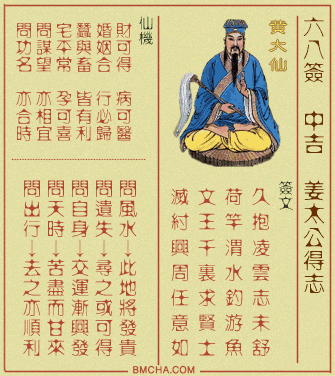 六八簽 中吉 姜太公得志
黄大仙
簽文
久抱凌雲志未舒
荷竿渭水釣游魚
文王千裏求賢士
滅紂興周任意如
仙機
財可得 病可醫
婚姻合 行必歸
蠶與畜 皆有利
宅平常 孕可喜
問謀望 亦相宜
問功名 亦合時
問風水→此地將發貴
問遺失→尋之或可得
問自身→交運漸興發
問天時→苦盡而甘來
問出行→去之亦順利
BMCHA.COM